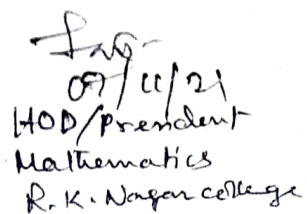 09/11/21
HOD/President
Mathematics
R.K. Nagar college